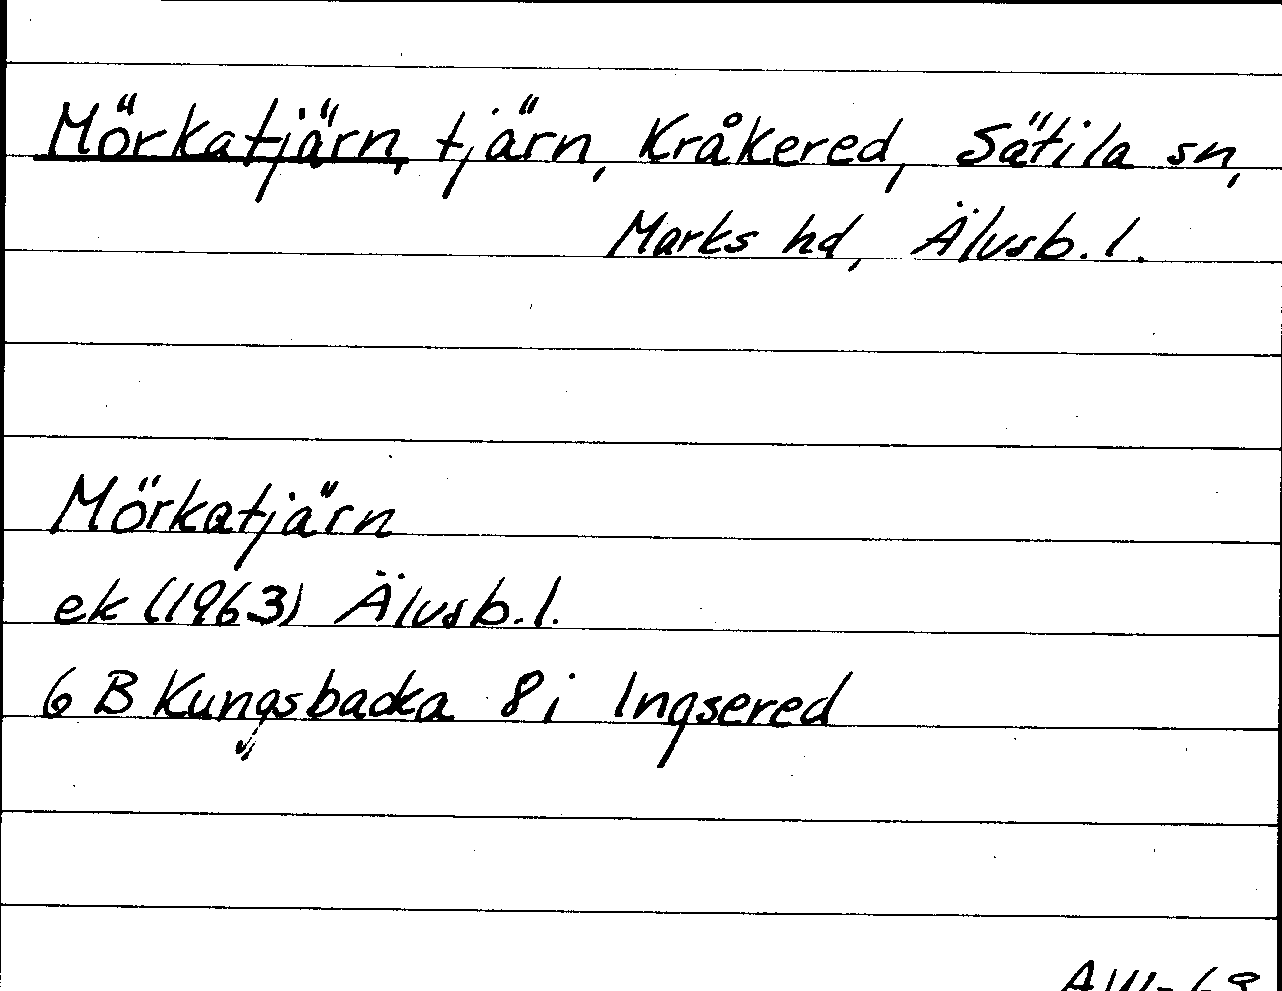 Mörkatjärn, tjärn, Kråkered, Sätila sn,
Marks hd, Älvsb. l.
Mörkatjärn
ek (1963) Älvsb. l.
6 B Kungsbacka 8 i Ingsered